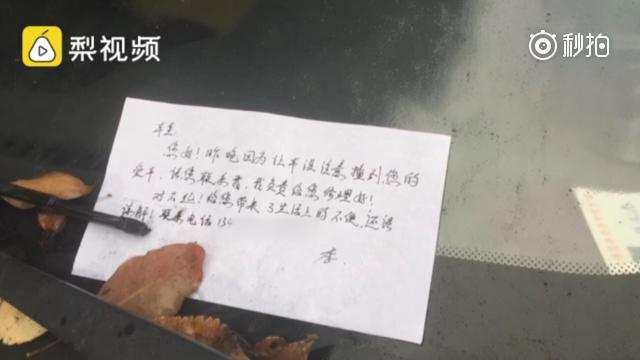 梨视频
秒拍
车主
您好！昨晚因为让车没注意撞到您的
爱车，我负责给您修理好！
对不起！给您带来了生活上的不便，还请
谅解！联系电话134
李.